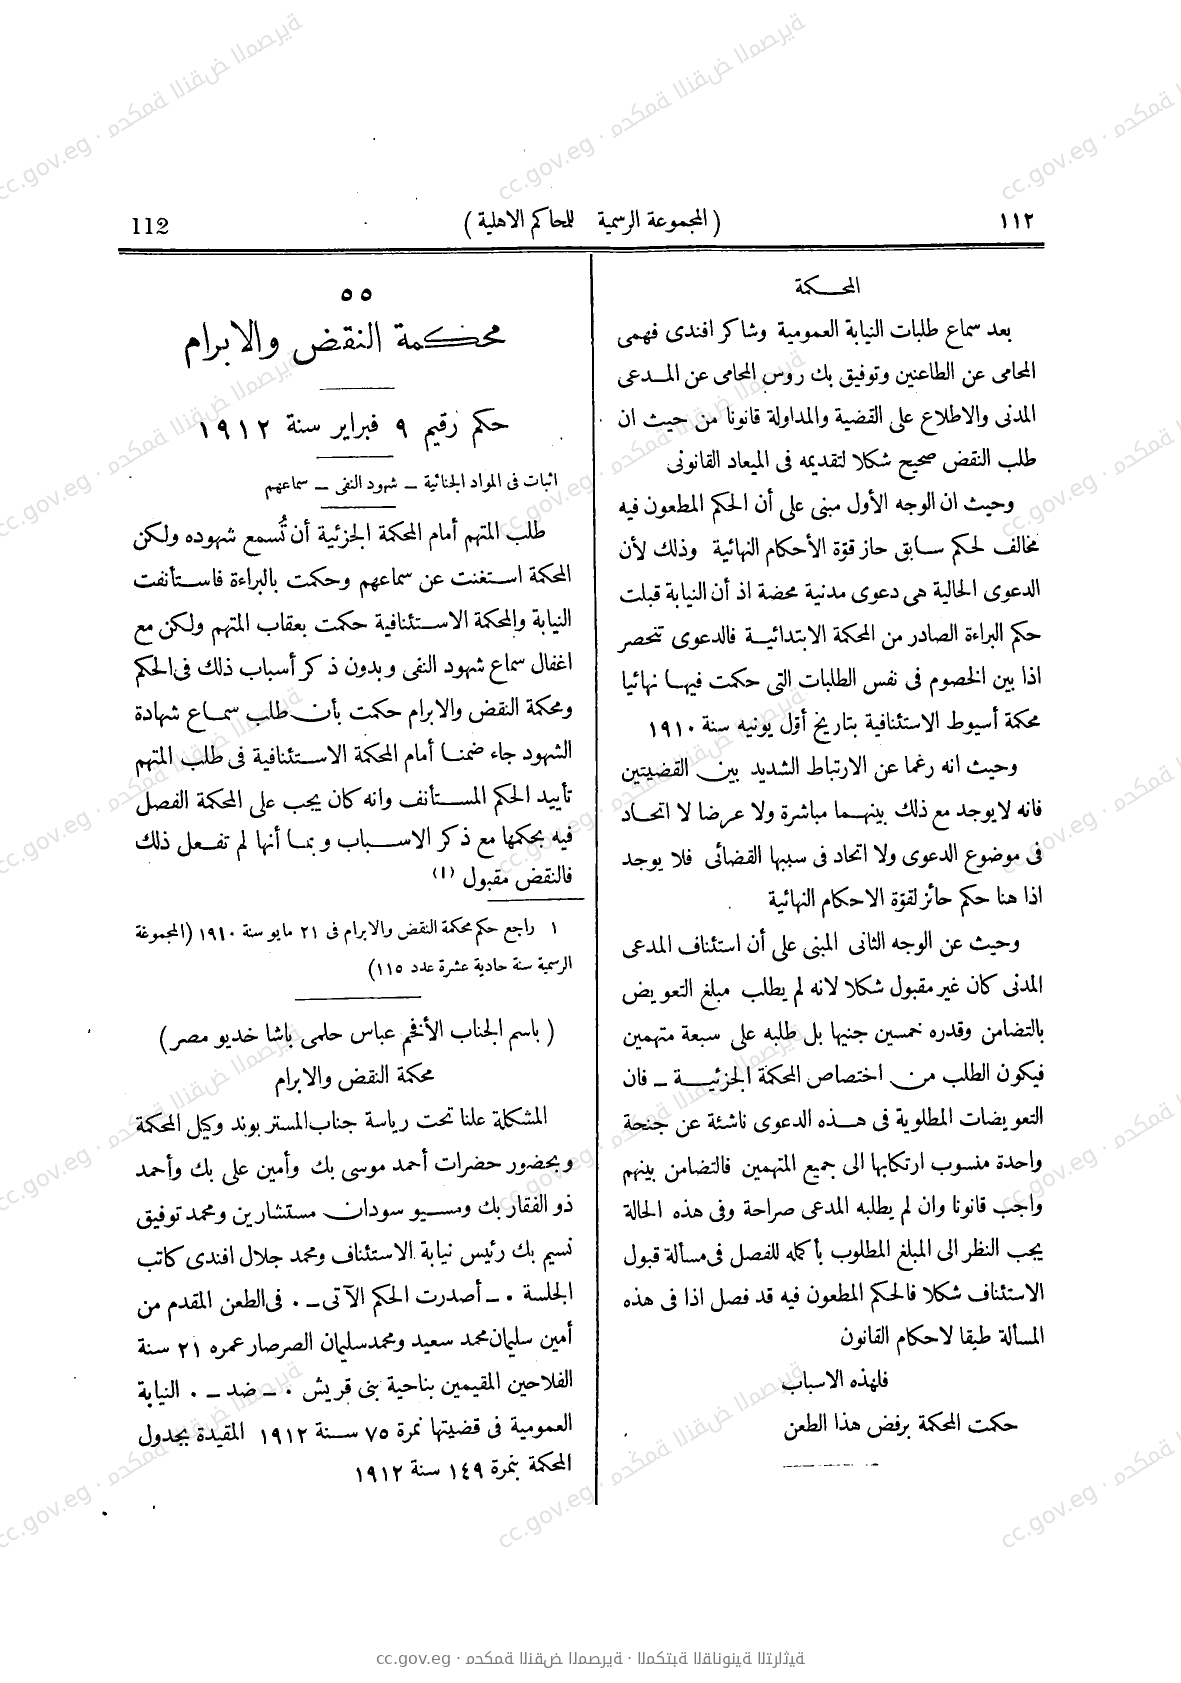 ١١٢
( المجموعة الرسمية للمحاكم الاهلية )
112
المحكمة
بعد سماع طلبات النيابة العمومية وشاكر افندى فهمى
المحامى عن الطاعنين وتوفيق بك روس المحامى عن المدعى
المدنى والاطلاع على القضية والمداولة قانونا من حيث ان
طلب النقض صحيح شكلا لتقديمه فى الميعاد القانونى
وحيث ان الوجه الأول مبنى على أن الحكم المطعون فيه
مخالف لحكم سابق حاز قوّة الأحكام النهائية وذلك لأن
الدعوى الحالية هى دعوى مدنية محضة اذ أن النيابة قبلت
حكم البراءة الصادر من المحكمة الابتدائية فالدعوى تنحصر
اذا بين الخصوم فى نفس الطلبات التى حكمت فيها نهائيا
محكمة أسيوط الاستئنافية بتاريخ أوّل يونيه سنة ١٩١٠
وحيث انه رغما عن الارتباط الشديد بين القضيتين
فانه لا يوجد مع ذلك بينهما مباشرة ولا عرضا لا اتحاد
فى موضوع الدعوى ولا اتحاد فى سببها القضائى فلا يوجد
اذا هنا حكم حائز لقوّة الاحكام النهائية
وحيث عن الوجه الثانى المبنى على أن استئناف المدعى
المدنى كان غير مقبول شكلا لانه لم يطلب مبلغ التعويض
بالتضامن وقدره خمسين جنيها بل طلبه على سبعة متهمين
فيكون الطلب من اختصاص المحكمة الجزئية ــ فان
التعويضات المطلوبة فى هذه الدعوى ناشئة عن جنحة
واحدة منسوب ارتكابها الى جميع المتهمين فالتضامن بينهم
واجب قانونا وان لم يطلبه المدعى صراحة وفى هذه الحالة
يجب النظر الى المبلغ المطلوب بأكمله للفصل فى مسألة قبول
الاستئناف شكلا فالحكم المطعون فيه قد فصل اذا فى هذه
المسألة طبقا لاحكام القانون
فلهذه الاسباب
حكمت المحكمة برفض هذا الطعن
٥٥
محكمة النقض والابرام
حكم رقيم ٩ فبراير سنة ١٩١٢
اثبات فى المواد الجنائية ــ شهود النفى ــ سماعهم
طلب المتهم أمام المحكمة الجزئية أن تُسمع شهوده ولكن
المحكمة استغنت عن سماعهم وحكمت بالبراءة فاستأنفت
النيابة والمحكمة الاستئنافية حكمت بعقاب المتهم ولكن مع
اغفال سماع شهود النفى وبدون ذكر أسباب ذلك فى الحكم
ومحكمة النقض والابرام حكمت بأن طلب سماع شهادة
الشهود جاء ضمنا أمام المحكمة الاستئنافية فى طلب المتهم
تأييد الحكم المستأنف وانه كان يجب على المحكمة الفصل
فيه بحكمها مع ذكر الاسباب وبما أنها لم تفعل ذلك
فالنقض مقبول (١)
١ راجع حكم محكمة النقض والابرام فى ٢١ مايو سنة ١٩١٠ (المجموعة
الرسمية سنة حادية عشرة عدد ١١٥)
( باسم الجناب الأفخم عباس حلمى باشا خديو مصر )
محكمة النقض والابرام
المشكلة علنا تحت رياسة جناب المستر بوند وكيل المحكمة
وبحضور حضرات أحمد موسى بك وأمين على بك وأحمد
ذو الفقار بك ومسيو سودان مستشارين ومحمد توفيق
نسيم بك رئيس نيابة الاستئناف ومحمد جلال افندى كاتب
الجلسة . ــ أصدرت الحكم الآتى ــ . فى الطعن المقدم من
أمين سليمان محمد سعيد ومحمد سليمان الصرصار عمره ٢١ سنة
الفلاحين المقيمين بناحية بنى قريش . ــ ضد ــ . النيابة
العمومية فى قضيتها نمرة ٧٥ سنة ١٩١٢ المقيدة بجدول
المحكمة بنمرة ١٤٩ سنة ١٩١٢
cc.gov.eg · محكمة النقض المصرية · المكتبة القانونية التراثية